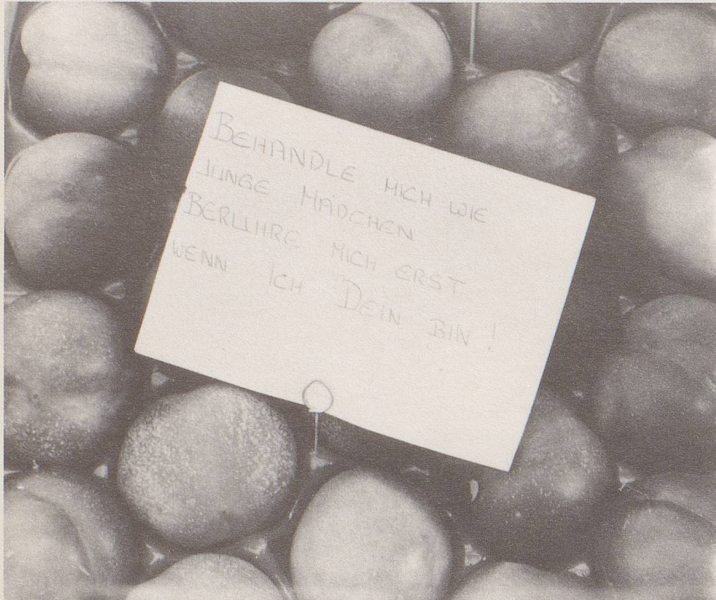 BEHANDLE MICH WIE
JUNGE MÄDCHEN
BERÜHRE MICH ERST
WENN ICH DEIN BIN !